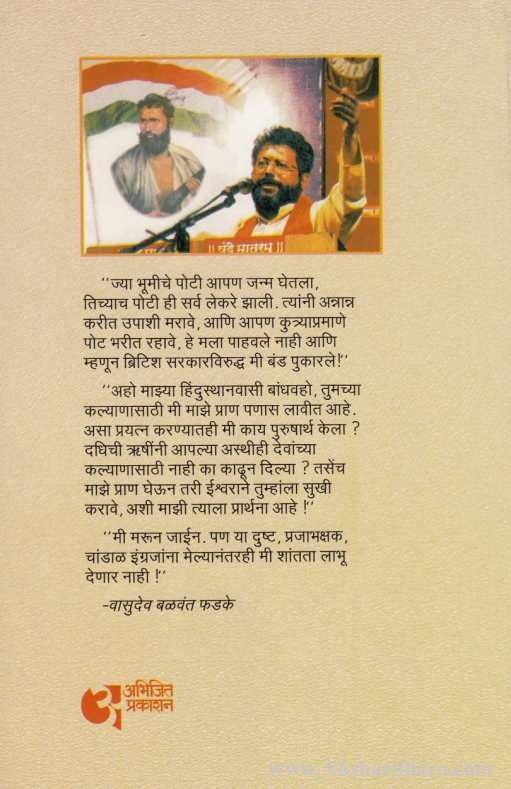 || वंदे मातरम् ||
‘‘ज्या भूमीचे पोटी आपण जन्म घेतला,
तिच्याच पोटी ही सर्व लेकरे झाली. त्यांनी अन्नान्न
करीत उपाशी मरावे, आणि आपण कुत्र्याप्रमाणे
पोट भरीत रहावे, हे मला पाहवले नाही आणि
म्हणून ब्रिटिश सरकारविरुद्ध मी बंड पुकारले!‘‘
‘‘अहो माझ्या हिंदुस्थानवासी बांधवहो, तुमच्या
कल्याणासाठी मी माझे प्राण पणास लावीत आहे.
असा प्रयत्न करण्यातही मी काय पुरुषार्थ केला ?
दधिची ऋषींनी आपल्या अस्थीही देवांच्या
कल्याणासाठी नाही का काढून दिल्या ? तसेंच
माझे प्राण घेऊन तरी ईश्वराने तुम्हांला सुखी
करावे, अशी माझी त्याला प्रार्थना आहे !‘‘
‘‘मी मरून जाईन. पण या दुष्ट, प्रजाभक्षक,
चांडाळ इंग्रजांना मेल्यानंतरही मी शांतता लाभू
देणार नाही !‘‘
-वासुदेव बळवंत फडके
अभिजित
प्रकाशन